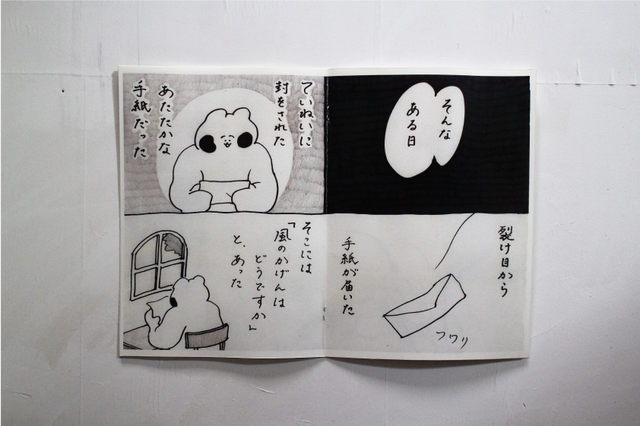 そんな
ある日
裂け目から
手紙が届いた
フワリ
ていねいに
封をされた
あたたかな
手紙だった
そこには
「風のかげんは
どうですか」
と、あった